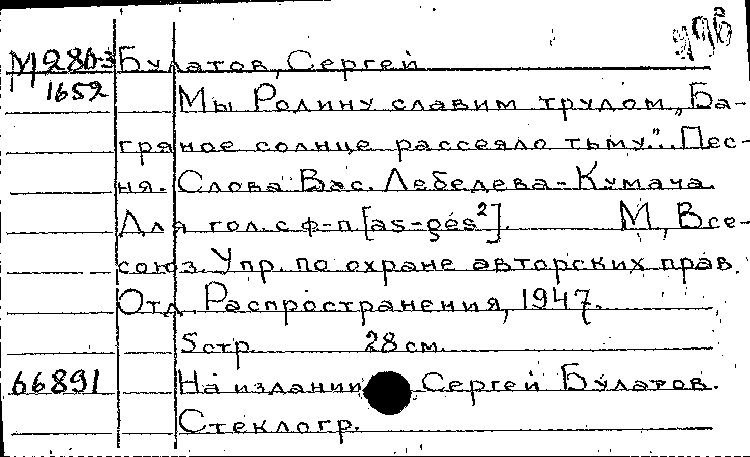 ччб
М280-3 Булатов, Сергей
1652 Мы Родину славим трудом „Ба-
гряное солнце рассеяло тьму". Пес-
ня. Слова Вас. Лебедева-Кумача.
Для гол. с ф-п [as-ges²]. М, Все-
союз. Упр. по охране авторских прав.
Отд. Распространения, 1947.
5 стр. 28 см.
66891 На издании Сергей Булатов.
Стеклогр.